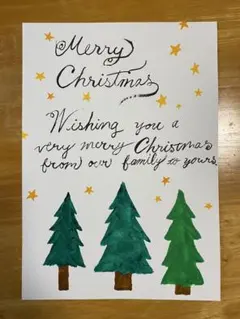 Merry
Christmas
Wishing you a
very merry Christmas
from our family to yours.